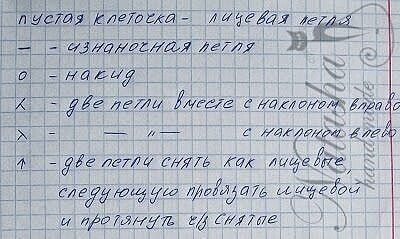 пустая клеточка - лицевая петля
— - изнаночная петля
о - накид
⋌ - две петли вместе с наклоном вправо
λ - — " — с наклоном влево
↑ - две петли снять как лицевые
следующую провязать лицевой
и протянуть ч/з снятые
Natasha
handmade